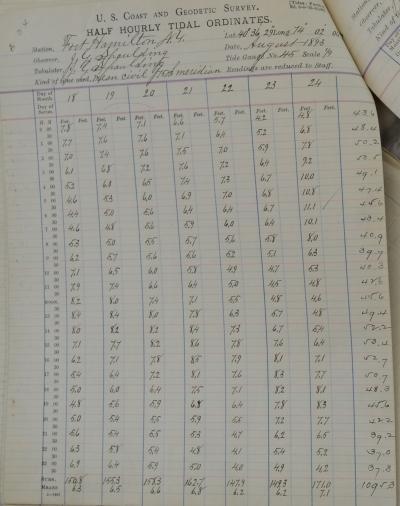 U. S. COAST AND GEODETIC SURVEY.
HALF HOURLY TIDAL ORDINATES.
Station, Fort Hamilton N.Y. Lat. 40 36 29 Long. 74 02
Observer, J. G. Spaulding Date, August 1893
Tabulator, J. G. Spaulding Tide Gauge No. 45 Scale 1/9
Kind of time used, civil 75th meridian Readings are reduced to Staff.
Day of Month. 18 19 20 21 22 23 24
Day of Series.
H. M. Feet. Feet. Feet. Feet. Feet. Feet. Feet.
0 00 7.8 7.4 7.1 6.6 5.7 4.2 4.8 43.6
1 00 7.7 7.6 7.6 7.1 6.4 5.2 6.8 48.4
2 00 7.0 7.4 7.6 7.5 7.0 5.9 7.8 50.2
3 00 6.1 6.8 7.2 7.6 7.2 6.4 9.2
4 00 5.2 6.8 6.5 7.4 7.3 6.7 10.0 49.1
5 00 4.6 5.3 6.0 6.9 7.0 6.8 10.8 47.4
6 00 4.4 5.0 5.6 6.4 6.4 6.7 11.1 45.6
7 00 4.6 4.8 5.6 5.9 6.0 6.4 10.1 43.4
8 00 5.3 5.0 5.5 5.7 5.6 5.8 8.0 40.9
9 00 6.2 5.7 5.6 5.6 5.2 5.1 6.3 39.7
10 00 7.1 6.5 6.0 5.8 4.9 4.7 5.3 40.3
11 00 7.9 7.4 6.6 6.4 5.0 4.5 4.8 42.6
NOON. 8.2 8.0 7.4 7.1 5.5 4.8 4.6 45.6
13 00 8.4 8.4 8.0 7.8 6.3 5.7 4.8 49.4
14 00 8.0 8.2 8.2 8.4 7.3 6.7 5.4 52.2
15 00 7.1 7.7 8.2 8.6 7.8 7.6 6.4 53.4
16 00 6.2 7.1 7.8 8.5 7.9 8.1 7.1 52.7
17 00 5.4 6.4 7.2 8.1 7.6 8.3 7.7 50.7
18 00 5.0 6.0 6.4 7.5 7.1 8.2 8.1 48.3
19 00 4.8 5.6 5.9 6.8 6.4 7.8 8.3 45.6
20 00 5.0 5.4 5.5 5.9 5.5 7.2 7.7 42.2
21 00 5.6 5.4 5.5 5.3 4.7 6.2 6.5 39.2
22 00 6.3 5.8 5.4 4.8 4.1 5.4 5.2 37.0
23 00 6.9 6.4 5.9 5.0 4.0 4.9 4.2 37.3
SUMS. 150.8 155.3 158.3 162.7 147.9 149.3 171.0 1095.3
MEANS 6.3 6.5 6.6 6.8 6.2 6.2 7.1